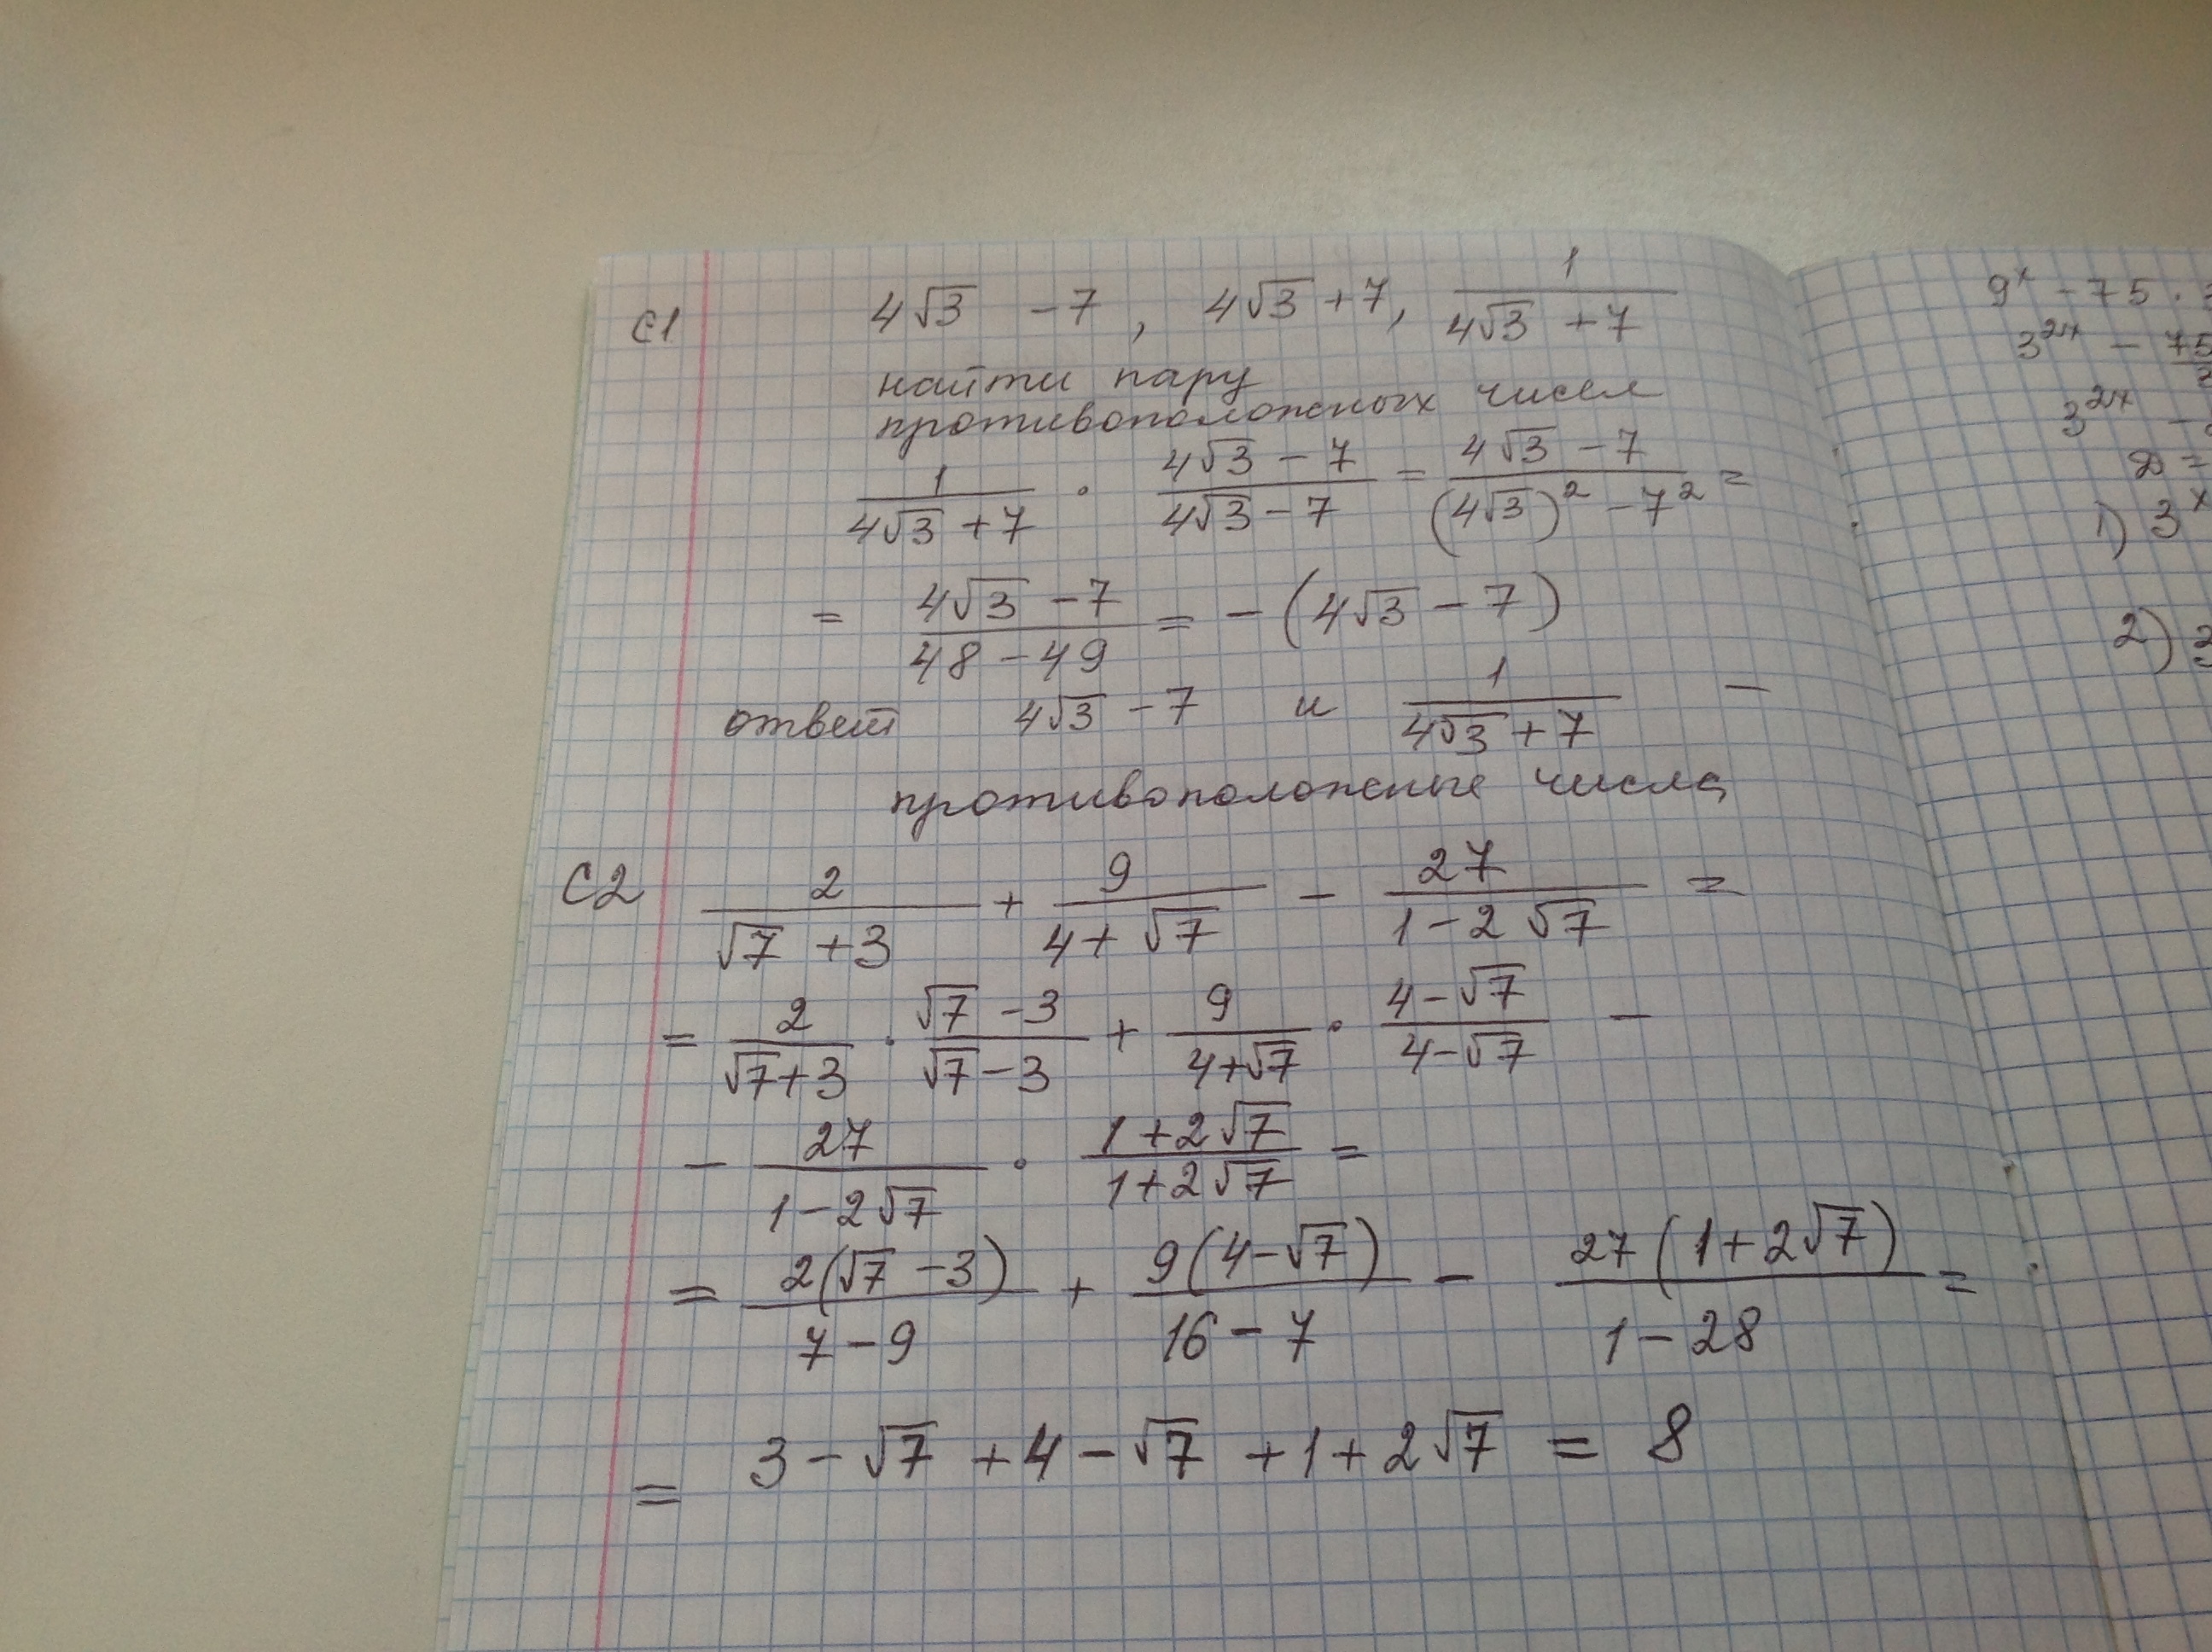 С1 4√3 - 7, 4√3 + 7, 1/(4√3 + 7)
найти пару
противоположных чисел
1/(4√3 + 7) · (4√3 - 7)/(4√3 - 7) = (4√3 - 7)/((4√3)² - 7²) =
= (4√3 - 7)/(48 - 49) = -(4√3 - 7)
ответ 4√3 - 7 и 1/(4√3 + 7) -
противоположные числа
С2 2/(√7 + 3) + 9/(4 + √7) - 27/(1 - 2√7) =
= 2/(√7 + 3) · (√7 - 3)/(√7 - 3) + 9/(4 + √7) · (4 - √7)/(4 - √7) -
- 27/(1 - 2√7) · (1 + 2√7)/(1 + 2√7) =
= 2(√7 - 3)/(7 - 9) + 9(4 - √7)/(16 - 7) - 27(1 + 2√7)/(1 - 28) =
= 3 - √7 + 4 - √7 + 1 + 2√7 = 8
9ˣ - 75 ·
3²ˣ - 75
3²ˣ -
D =
1) 3ˣ
2) 3